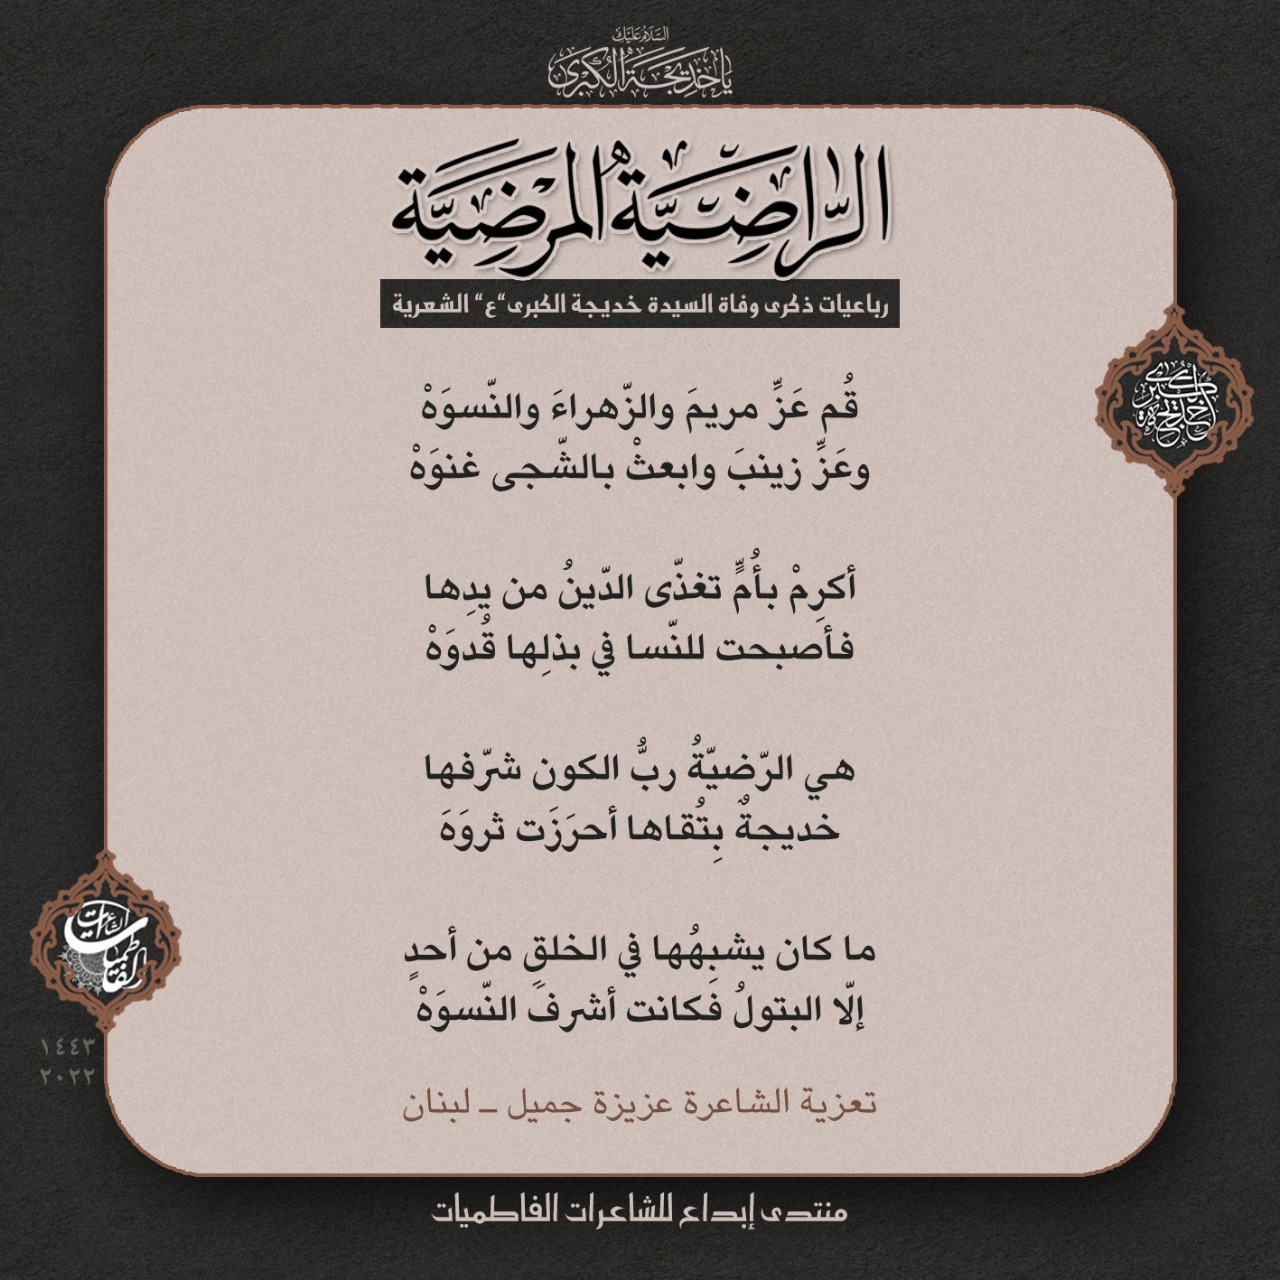 السلام عليك
يا خديجة الكبرى
الراضية المرضية
رباعيات ذكرى وفاة السيدة خديجة الكبرى"ع" الشعرية
قُم عَزِّ مريمَ والزّهراءَ والنّسوَهْ
وعَزِّ زينبَ وابعثْ بالشّجى غنوَهْ
خديجة الكبرى
أكرِمْ بأُمٍّ تغذّى الدّينُ من يدِها
فأصبحت للنّسا في بذلِها قُدوَهْ
هي الرّضيّةُ ربُّ الكون شرّفها
خديجةٌ بِتُقاها أحرَزَت ثروَهَ
ما كان يشبِهُها في الخلقِ من أحدٍ
إلّا البتولُ فكانت أشرفَ النّسوَهْ
الشاعرات
الفاطميات
١٤٤٣
٢٠٢٢
تعزية الشاعرة عزيزة جميل – لبنان
منتدى إبداع للشاعرات الفاطميات